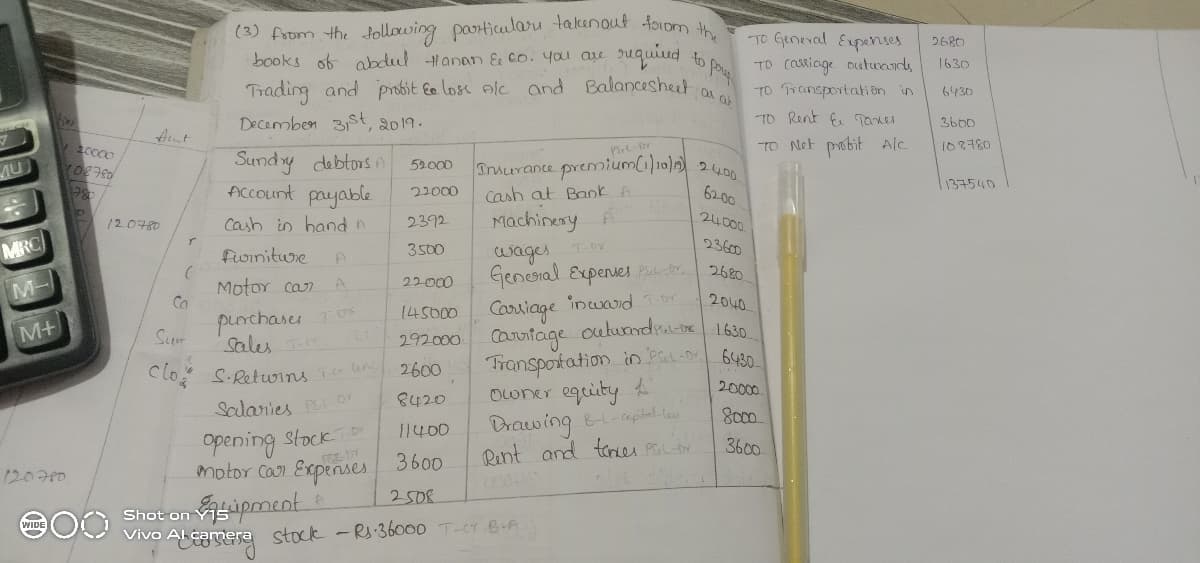 (3) from the following particulars taken out form the
books of abdul Hanan & co. you are required to
Trading and profit & loss A/c and Balancesheet as at
December 31st, 2019.
Sundry debtors 52000 Insurance premium 2400
Account payable 22000 Cash at Bank A 6200
Cash in hand 2392 Machinery 24000
Furniture A 3500 wages 23600
Motor car A 22000 General Expenses 2680
purchases 145000 Carriage inward 2040
Sales 292000 Carriage outward 1630
S.Returns 2600 Transportation in 6430
Salaries 8420 owner equity 20000
opening Stock 11400 Drawing 8000
motor car Expenses 3600 Rent and taxes 3600
Equipment 2508
closing stock - Rs.36000
TO General Expenses 2680
TO carriage outwards 1630
TO Transportation in 6430
TO Rent & Taxes 3600
TO Net profit A/c 108780
137540
Amt
20000
108780
120780
120780
MU
÷
MRC
M-
M+
WIDE
Shot on Y15
Vivo AI camera